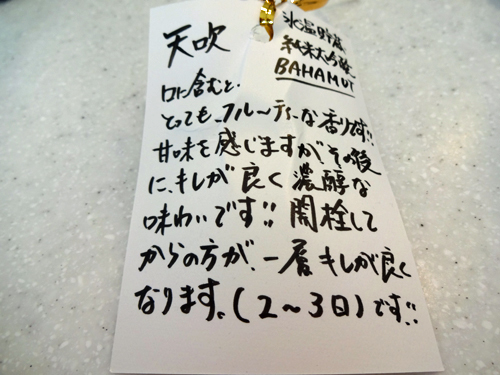 天吹
氷温貯蔵
純米大吟醸
BAHAMUT
口に含むと、
とっても、フルーティーな香りです!!
甘味を感じますがその後
に、キレが良く濃醇な
味わいです!! 開栓して
からの方が、一層キレが良く
なります。(2〜3日)です!!